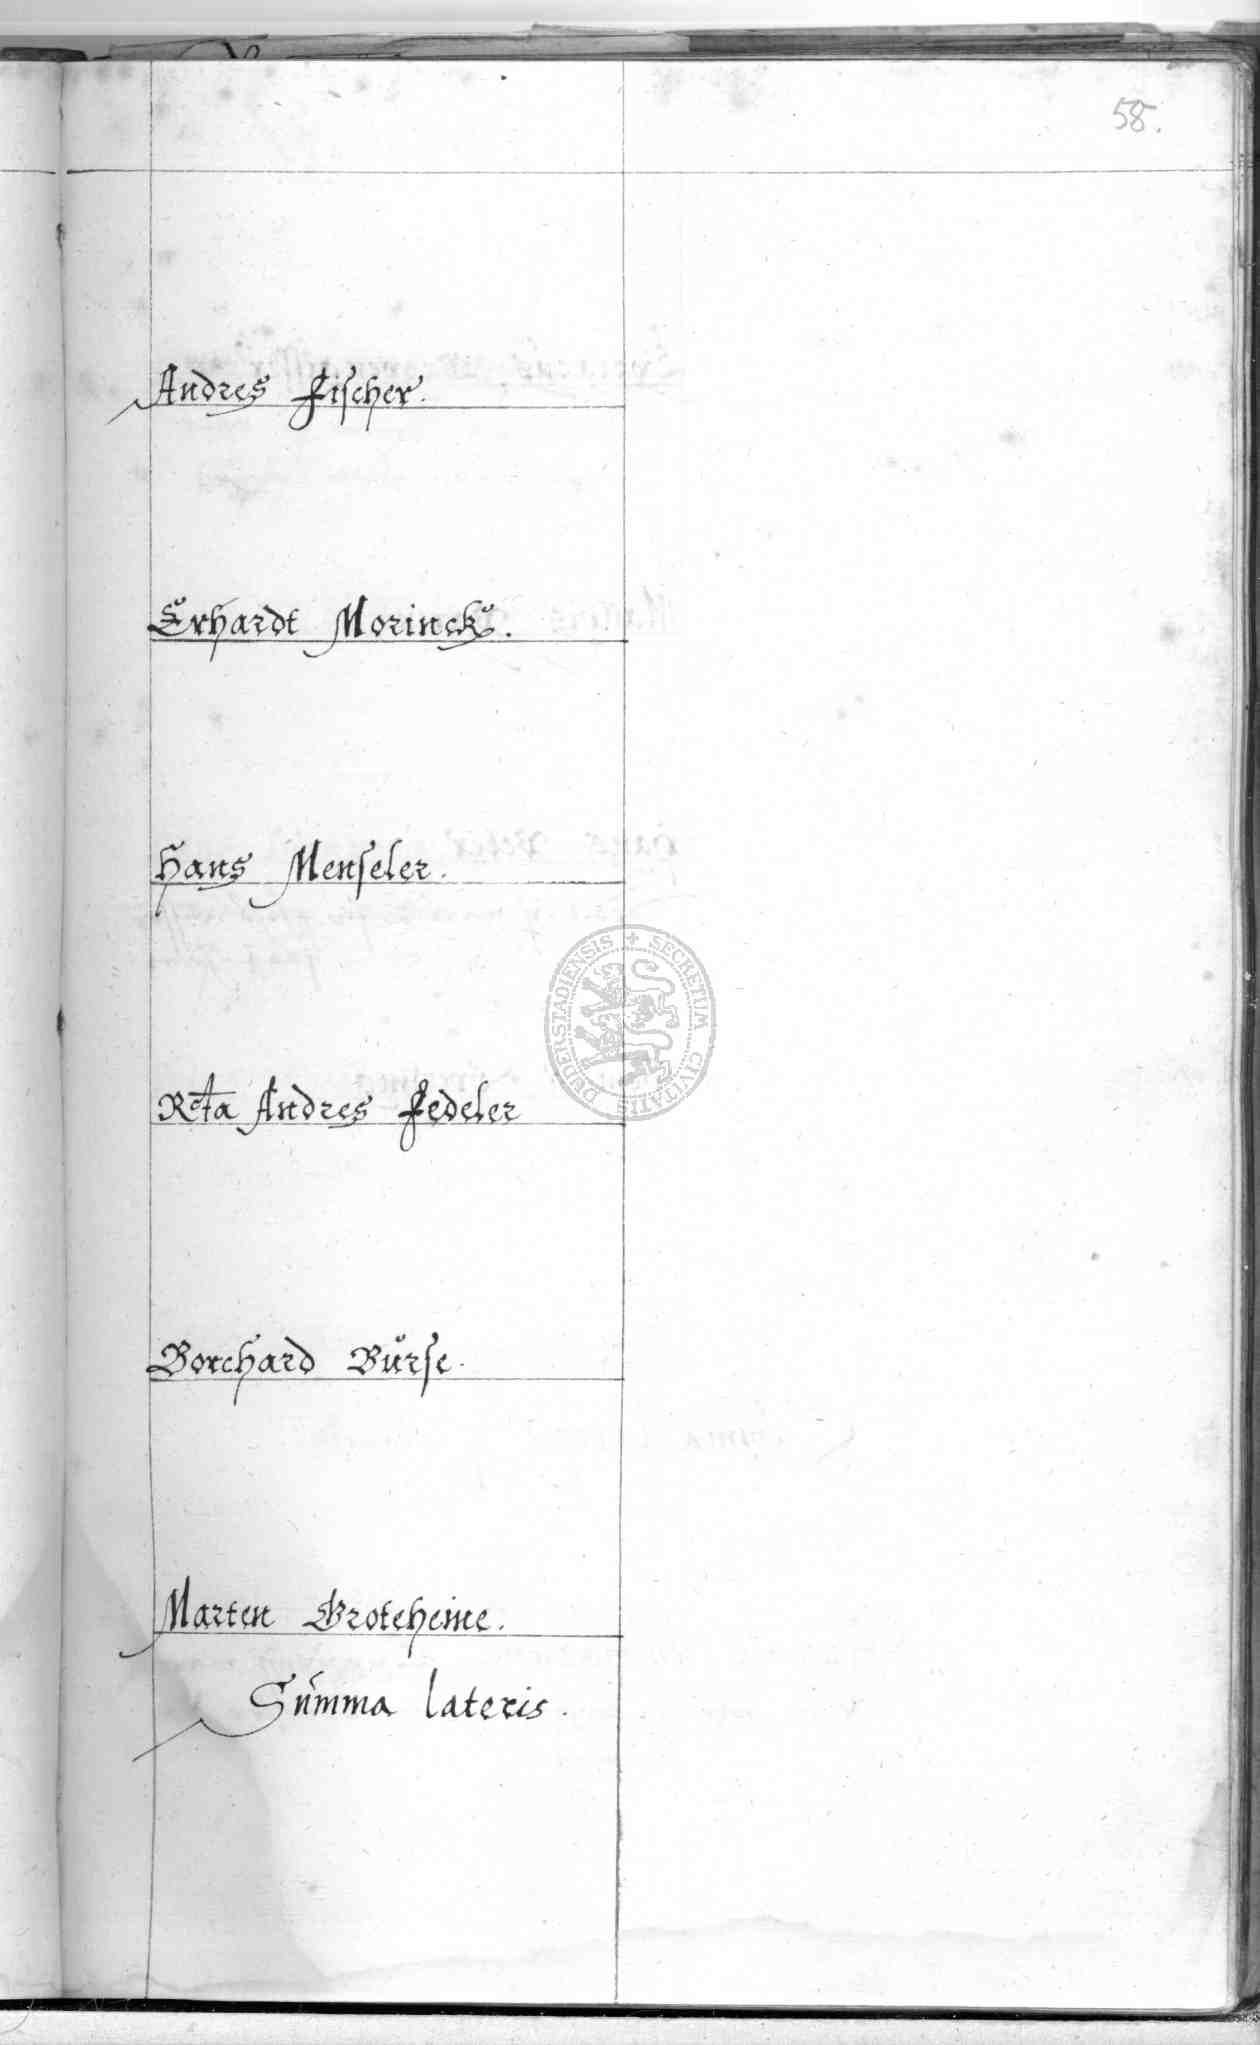 58.
Andres Fischer.
Erhardt Morinck.
Hans Menseler.
Rcta Andres Fedeler
Borchard Bürse.
Marten Groteheine.
Summa lateris.
SECRETUM CIVITATIS DUDERSTADIENSIS